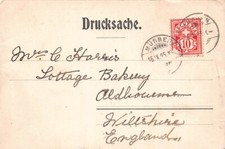 Drucksache.
Mrs C Harris
Cottage Bakery
Aldbourne
Wiltshire
England
10